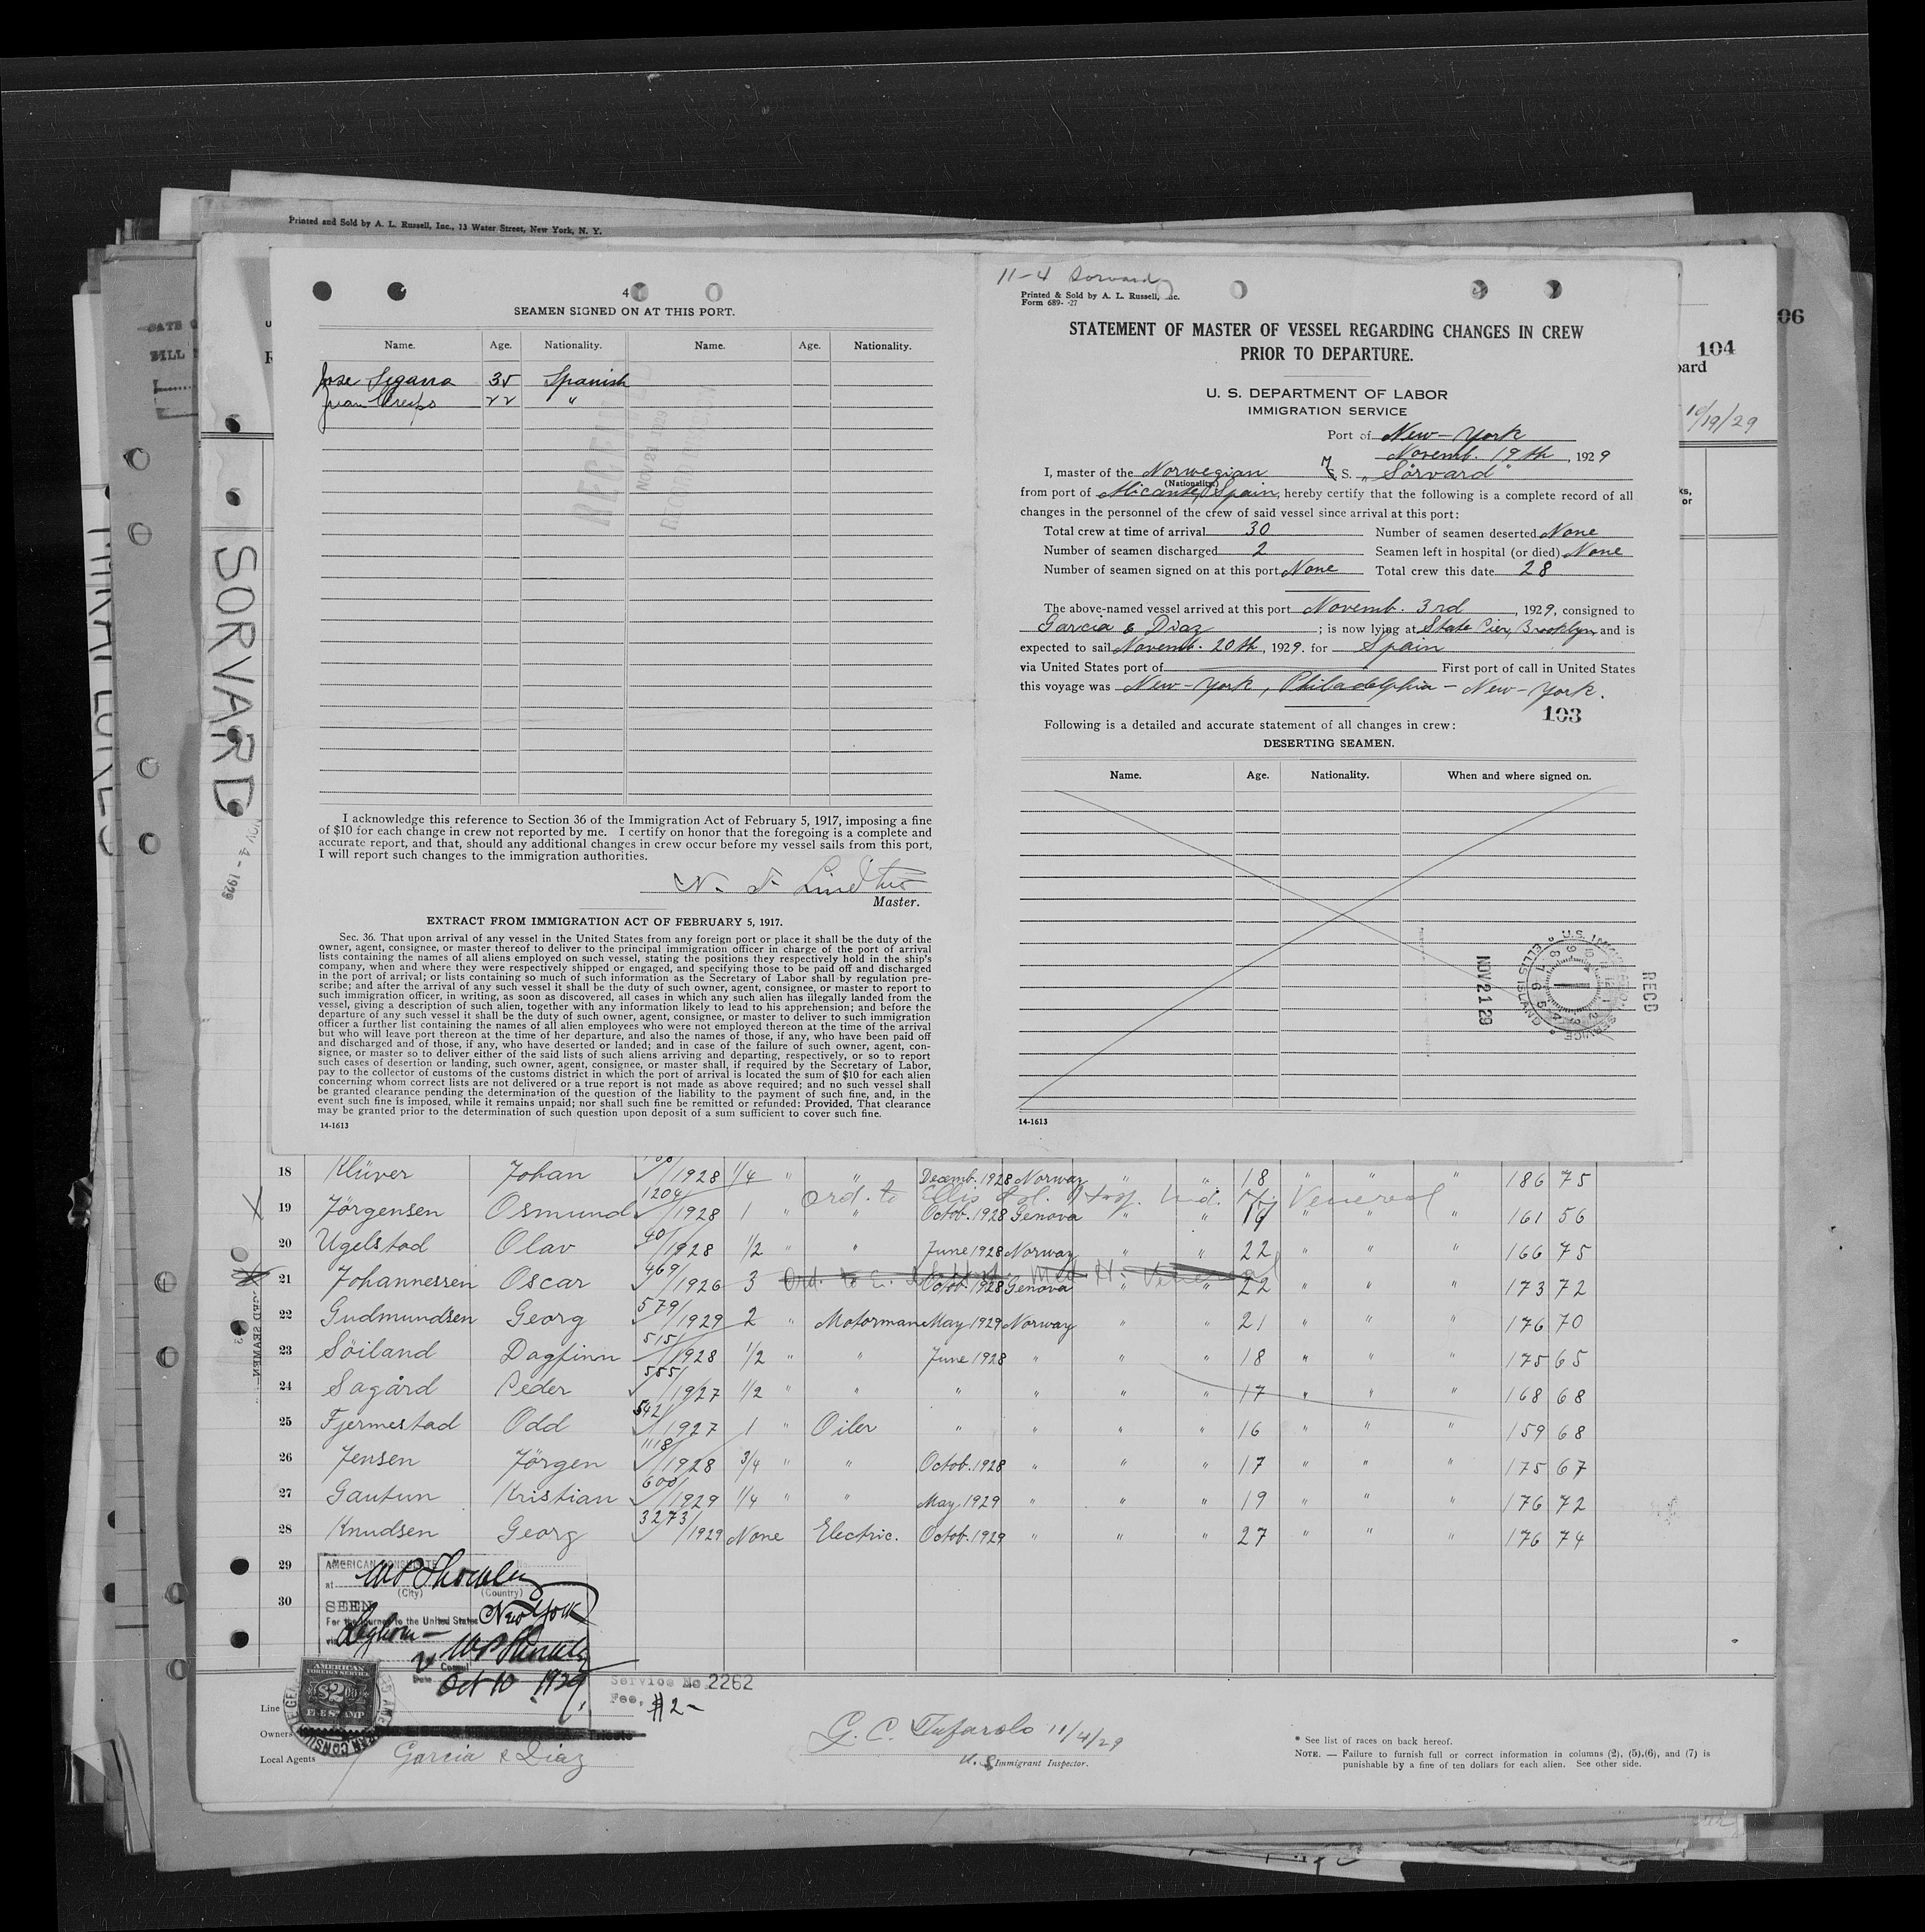 Printed and Sold by A. L. Russell, Inc., 13 Water Street, New York, N. Y.
4
SEAMEN SIGNED ON AT THIS PORT.
Name. Age. Nationality. Name. Age. Nationality.
Jose Segarra 35 Spanish
Juan Crespo 22 "
I acknowledge this reference to Section 36 of the Immigration Act of February 5, 1917, imposing a fine
of $10 for each change in crew not reported by me. I certify on honor that the foregoing is a complete and
accurate report, and that, should any additional changes in crew occur before my vessel sails from this port,
I will report such changes to the immigration authorities.
Master.
EXTRACT FROM IMMIGRATION ACT OF FEBRUARY 5, 1917.
Sec. 36. That upon arrival of any vessel in the United States from any foreign port or place it shall be the duty of the
owner, agent, consignee, or master thereof to deliver to the principal immigration officer in charge of the port of arrival
lists containing the names of all aliens employed on such vessel, stating the positions they respectively hold in the ship's
company, when and where they were respectively shipped or engaged, and specifying those to be paid off and discharged
in the port of arrival; or lists containing so much of such information as the Secretary of Labor shall by regulation pre-
scribe; and after the arrival of any such vessel it shall be the duty of such owner, agent, consignee, or master to report to
such immigration officer, in writing, as soon as discovered, all cases in which any such alien has illegally landed from the
vessel, giving a description of such alien, together with any information likely to lead to his apprehension; and before the
departure of any such vessel it shall be the duty of such owner, agent, consignee, or master to deliver to such immigration
officer a further list containing the names of all alien employees who were not employed thereon at the time of the arrival
but who will leave port thereon at the time of her departure, and also the names of those, if any, who have been paid off
and discharged and of those, if any, who have deserted or landed; and in case of the failure of such owner, agent, con-
signee, or master so to deliver either of the said lists of such aliens arriving and departing, respectively, or so to report
such cases of desertion or landing, such owner, agent, consignee, or master shall, if required by the Secretary of Labor,
pay to the collector of customs of the customs district in which the port of arrival is located the sum of $10 for each alien
concerning whom correct lists are not delivered or a true report is not made as above required; and no such vessel shall
be granted clearance pending the determination of the question of the liability to the payment of such fine, and, in the
event such fine is imposed, while it remains unpaid; nor shall such fine be remitted or refunded: Provided, That clearance
may be granted prior to the determination of such question upon deposit of a sum sufficient to cover such fine.
14-1613
11-4 Sorvard
Printed & Sold by A. L. Russell, Inc.
Form 689- -27
STATEMENT OF MASTER OF VESSEL REGARDING CHANGES IN CREW
PRIOR TO DEPARTURE.
U. S. DEPARTMENT OF LABOR
IMMIGRATION SERVICE
Port of New-York
Novemb. 19th, 1929
I, master of the Norwegian M S. "Sörvard"
(Nationality)
from port of Alicante, Spain, hereby certify that the following is a complete record of all
changes in the personnel of the crew of said vessel since arrival at this port:
Total crew at time of arrival 30 Number of seamen deserted None
Number of seamen discharged 2 Seamen left in hospital (or died) None
Number of seamen signed on at this port None Total crew this date 28
The above-named vessel arrived at this port Novemb. 3rd, 1929, consigned to
Garcia & Diaz; is now lying at State Pier, Brooklyn and is
expected to sail Novemb. 20th, 1929. for Spain
via United States port of First port of call in United States
this voyage was New-York, Philadelphia - New-York.
103
Following is a detailed and accurate statement of all changes in crew:
DESERTING SEAMEN.
Name. Age. Nationality. When and where signed on.
RECD
NOV 21 29
U.S. IMMIGRATION SERVICE ELLIS ISLAND
14-1613
06
104
oard
10/19/29
SORVARD
NOV 4 - 1929
18 Klüver Johan /1928 1/4 " " Decemb. 1928 Norway " " 18 " " " 186 75
Ord. to Ellis Isl. Hosp. Venereal
19 Jörgensen Osmund 1204/1928 1 " " Octob. 1928 Genova " " 19 " " " 161 56
20 Ugelstad Olav 40/1928 1/2 " " June 1928 Norway " " 22 " " " 166 75
21 Johannessen Oscar 469/1926 3 Octob. 1928 Genova " " 22 " " " 173 72
22 Gudmundsen Georg 579/1929 2 " Motorman May 1929 Norway " " 21 " " " 176 70
23 Söiland Dagfinn 515/1928 1/2 " " June 1928 " " " 18 " " " 175 65
24 Sagård Peder 555/1927 1/2 " " " " " " 17 " " " 168 68
25 Fjermestad Odd 542/1927 1 " Oiler " " " " 16 " " " 159 68
26 Jensen Jörgen 1118/1928 3/4 " " Octob. 1928 " " " 17 " " " 175 67
27 Gautun Kristian 600/1929 1/4 " " May. 1929 " " " 19 " " " 176 72
28 Knudsen Georg 3273/1929 None Electric. Octob. 1929 " " " 27 " " " 176 74
29
30
AMERICAN CONSULATE
at
(City) (Country)
SEEN
For the journey to the United States New York
via Leghorn
Consul
Date Oct 10 1929
AMERICAN
FOREIGN SERVICE
$2.00
FEE STAMP
Service No. 2262
Fee, $2-
Line
Owners
Local Agents Garcia & Diaz
G. C. Tufarolo 11/4/29
U. S. Immigrant Inspector.
* See list of races on back hereof.
NOTE. — Failure to furnish full or correct information in columns (2), (5), (6), and (7) is
punishable by a fine of ten dollars for each alien. See other side.